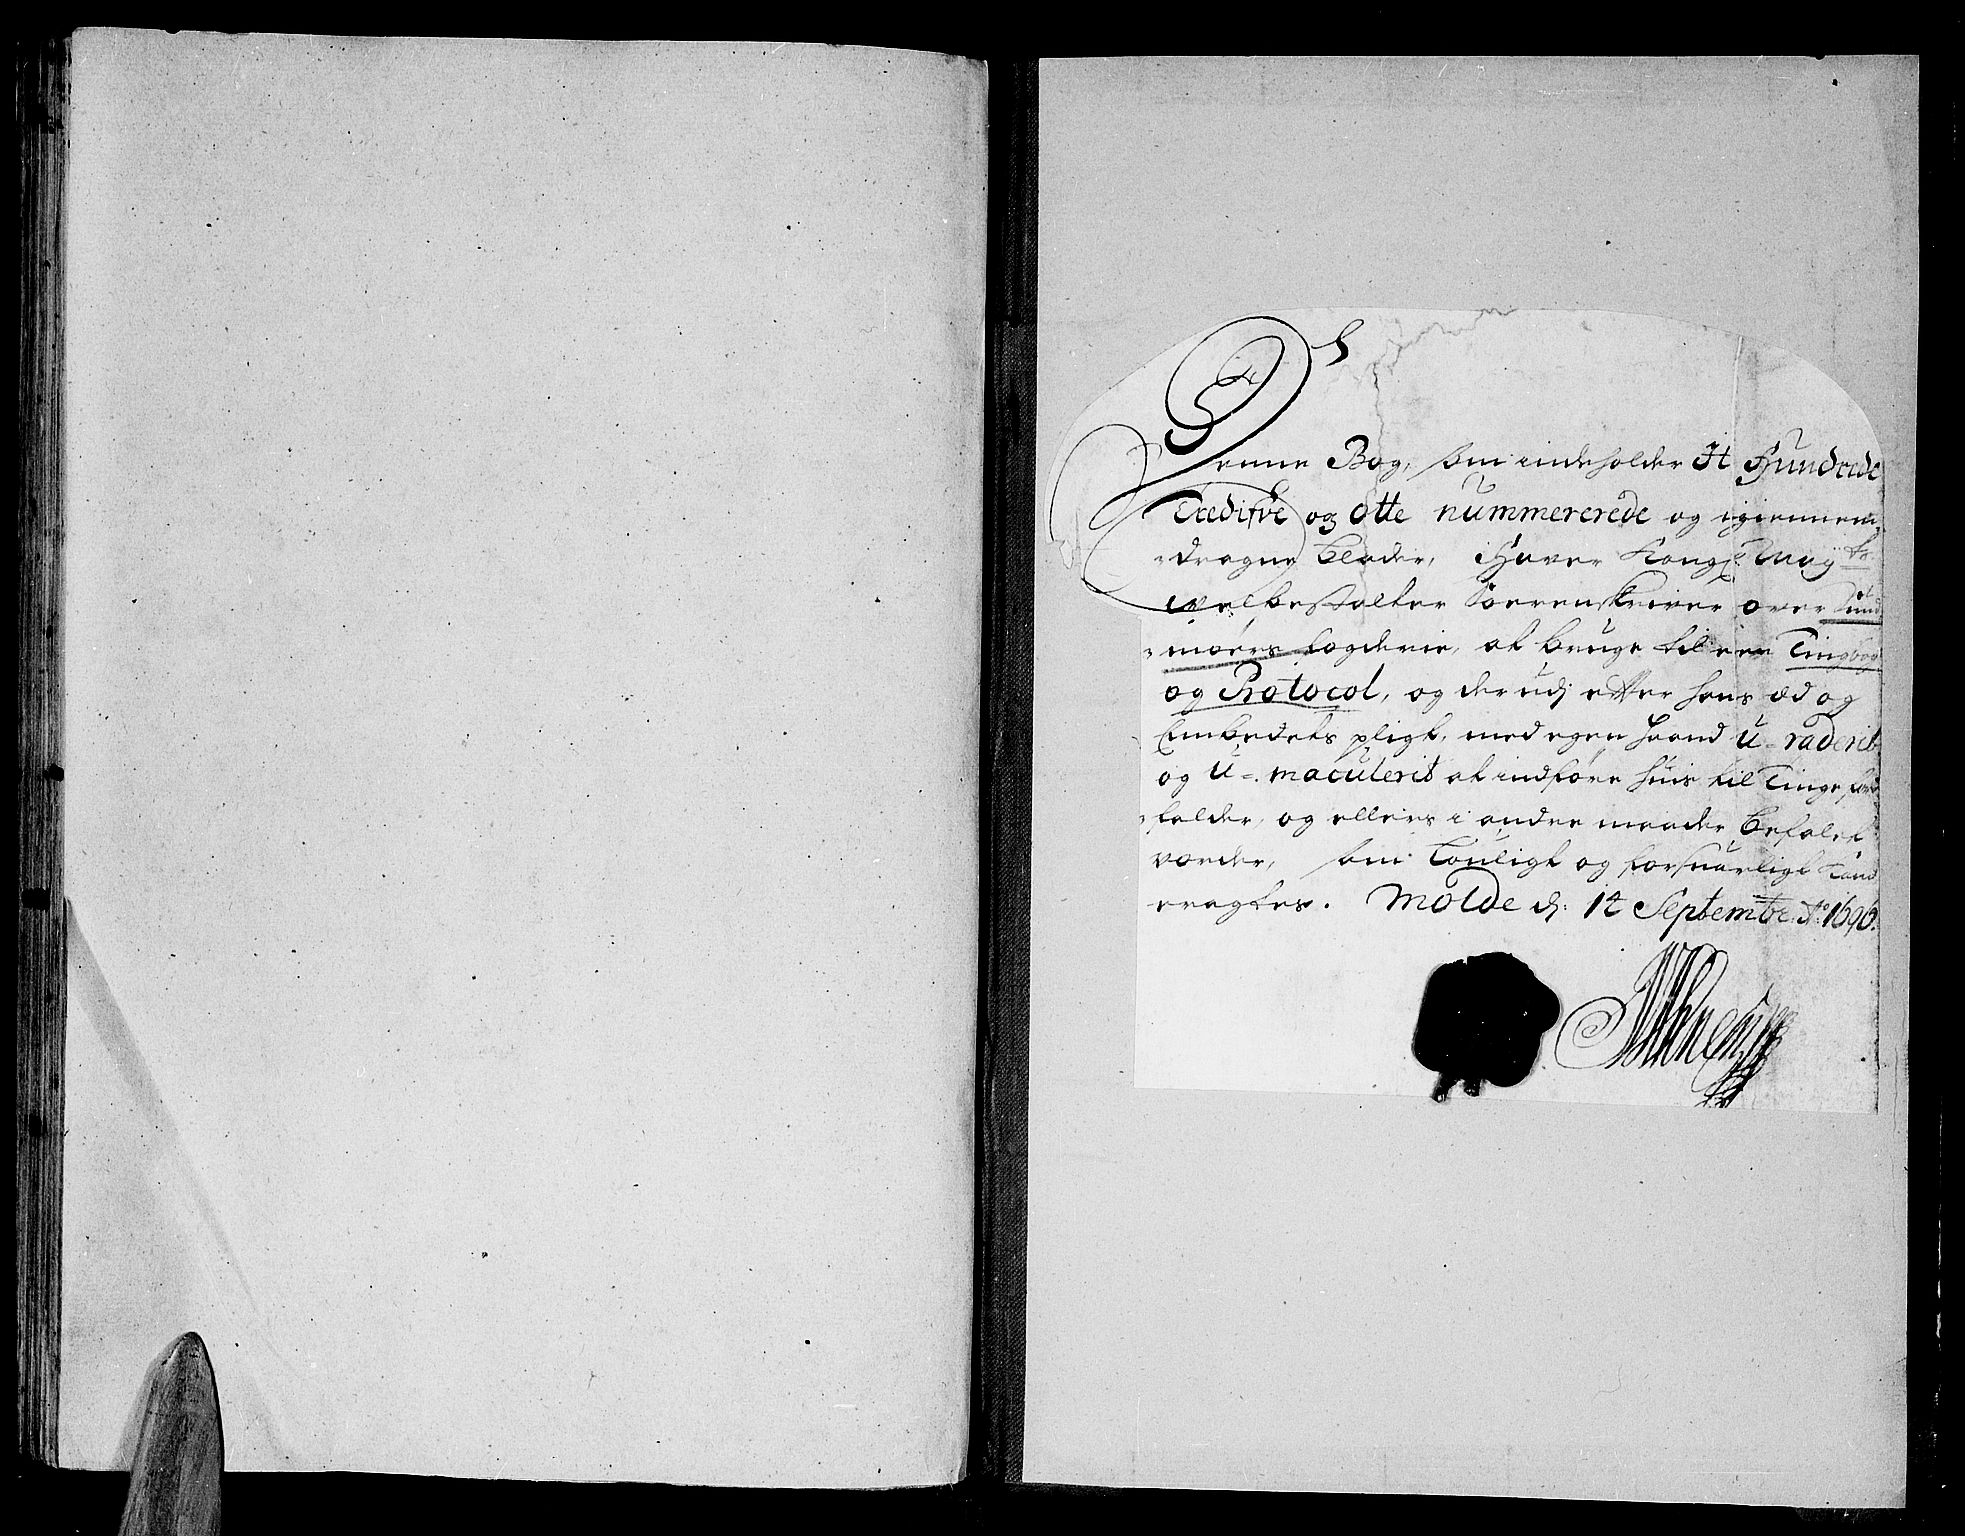 Denne Bog, som indeholder It Hundrede
Tredifve og otte nummererede og igiennem
dragne blader, Hafver Kongl: May ts
velbestalter Soerenskriver over Sund
moers fogderie, at bruge til een Tingbog
og Protocol, og der udj efter hans æd og
Embedets pligt, med egen haand u-raderit
og u-maculerit at indføre huis til Tinge fore
falder, og ellers i andre maader befalet
vorder, som louligt og forsuarligt kand
eragtes. Molde d: 14 Septembr: Ao 1696.